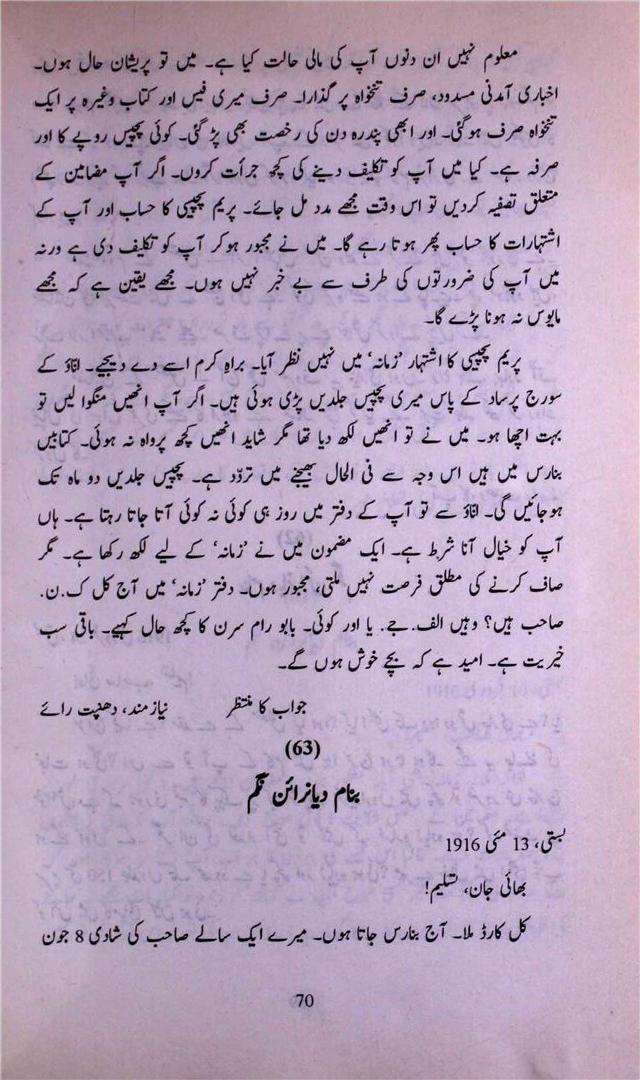 معلوم نہیں ان دنوں آپ کی مالی حالت کیا ہے۔ میں تو پریشان حال ہوں۔
اخباری آمدنی مسدود، صرف تنخواہ پر گذارا۔ صرف میری فیس اور کتاب وغیرہ پر ایک
تنخواہ صرف ہوگئی۔ اور ابھی پندرہ دن کی رخصت بھی پڑ گئی۔ کوئی پچیس روپے کا اور
صرفہ ہے۔ کیا میں آپ کو تکلیف دینے کی کچھ جرأت کروں۔ اگر آپ مضامین کے
متعلق تصفیہ کردیں تو اس وقت مجھے مدد مل جائے۔ پریم پچیسی کا حساب اور آپ کے
اشتہارات کا حساب پھر ہوتا رہے گا۔ میں نے مجبور ہوکر آپ کو تکلیف دی ہے ورنہ
میں آپ کی ضرورتوں کی طرف سے بے خبر نہیں ہوں۔ مجھے یقین ہے کہ مجھے
مایوس نہ ہونا پڑے گا۔
پریم پچیسی کا اشتہار ’زمانہ‘ میں نہیں نظر آیا۔ براہِ کرم اسے دے دیجیے۔ اناؤ کے
سورج پرساد کے پاس میری پچیس جلدیں پڑی ہوئی ہیں۔ اگر آپ انھیں منگوا لیں تو
بہت اچھا ہو۔ میں نے تو انھیں لکھ دیا تھا مگر شاید انھیں کچھ پرواہ نہ ہوئی۔ کتابیں
بنارس میں ہیں اس وجہ سے فی الحال بھیجنے میں تردّد ہے۔ پچیس جلدیں دو ماہ تک
ہوجائیں گی۔ اناؤ سے تو آپ کے دفتر میں روز ہی کوئی نہ کوئی آتا جاتا رہتا ہے۔ ہاں
آپ کو خیال آنا شرط ہے۔ ایک مضمون میں نے ’زمانہ‘ کے لیے لکھ رکھا ہے۔ مگر
صاف کرنے کی مطلق فرصت نہیں ملتی، مجبور ہوں۔ دفتر ’زمانہ‘ میں آج کل ک۔ن۔
صاحب ہیں؟ وہیں الف۔جے۔ یا اور کوئی۔ بابو رام سرن کا کچھ حال کہیے۔ باقی سب
خیریت ہے۔ امید ہے کہ بچے خوش ہوں گے۔
جواب کا منتظر نیازمند، دھنپت رائے
(63)
بنام دیانرائن نگم
بستی، 13 مئی 1916
بھائی جان، تسلیم!
کل کارڈ ملا۔ آج بنارس جاتا ہوں۔ میرے ایک سالے صاحب کی شادی 8 جون
70